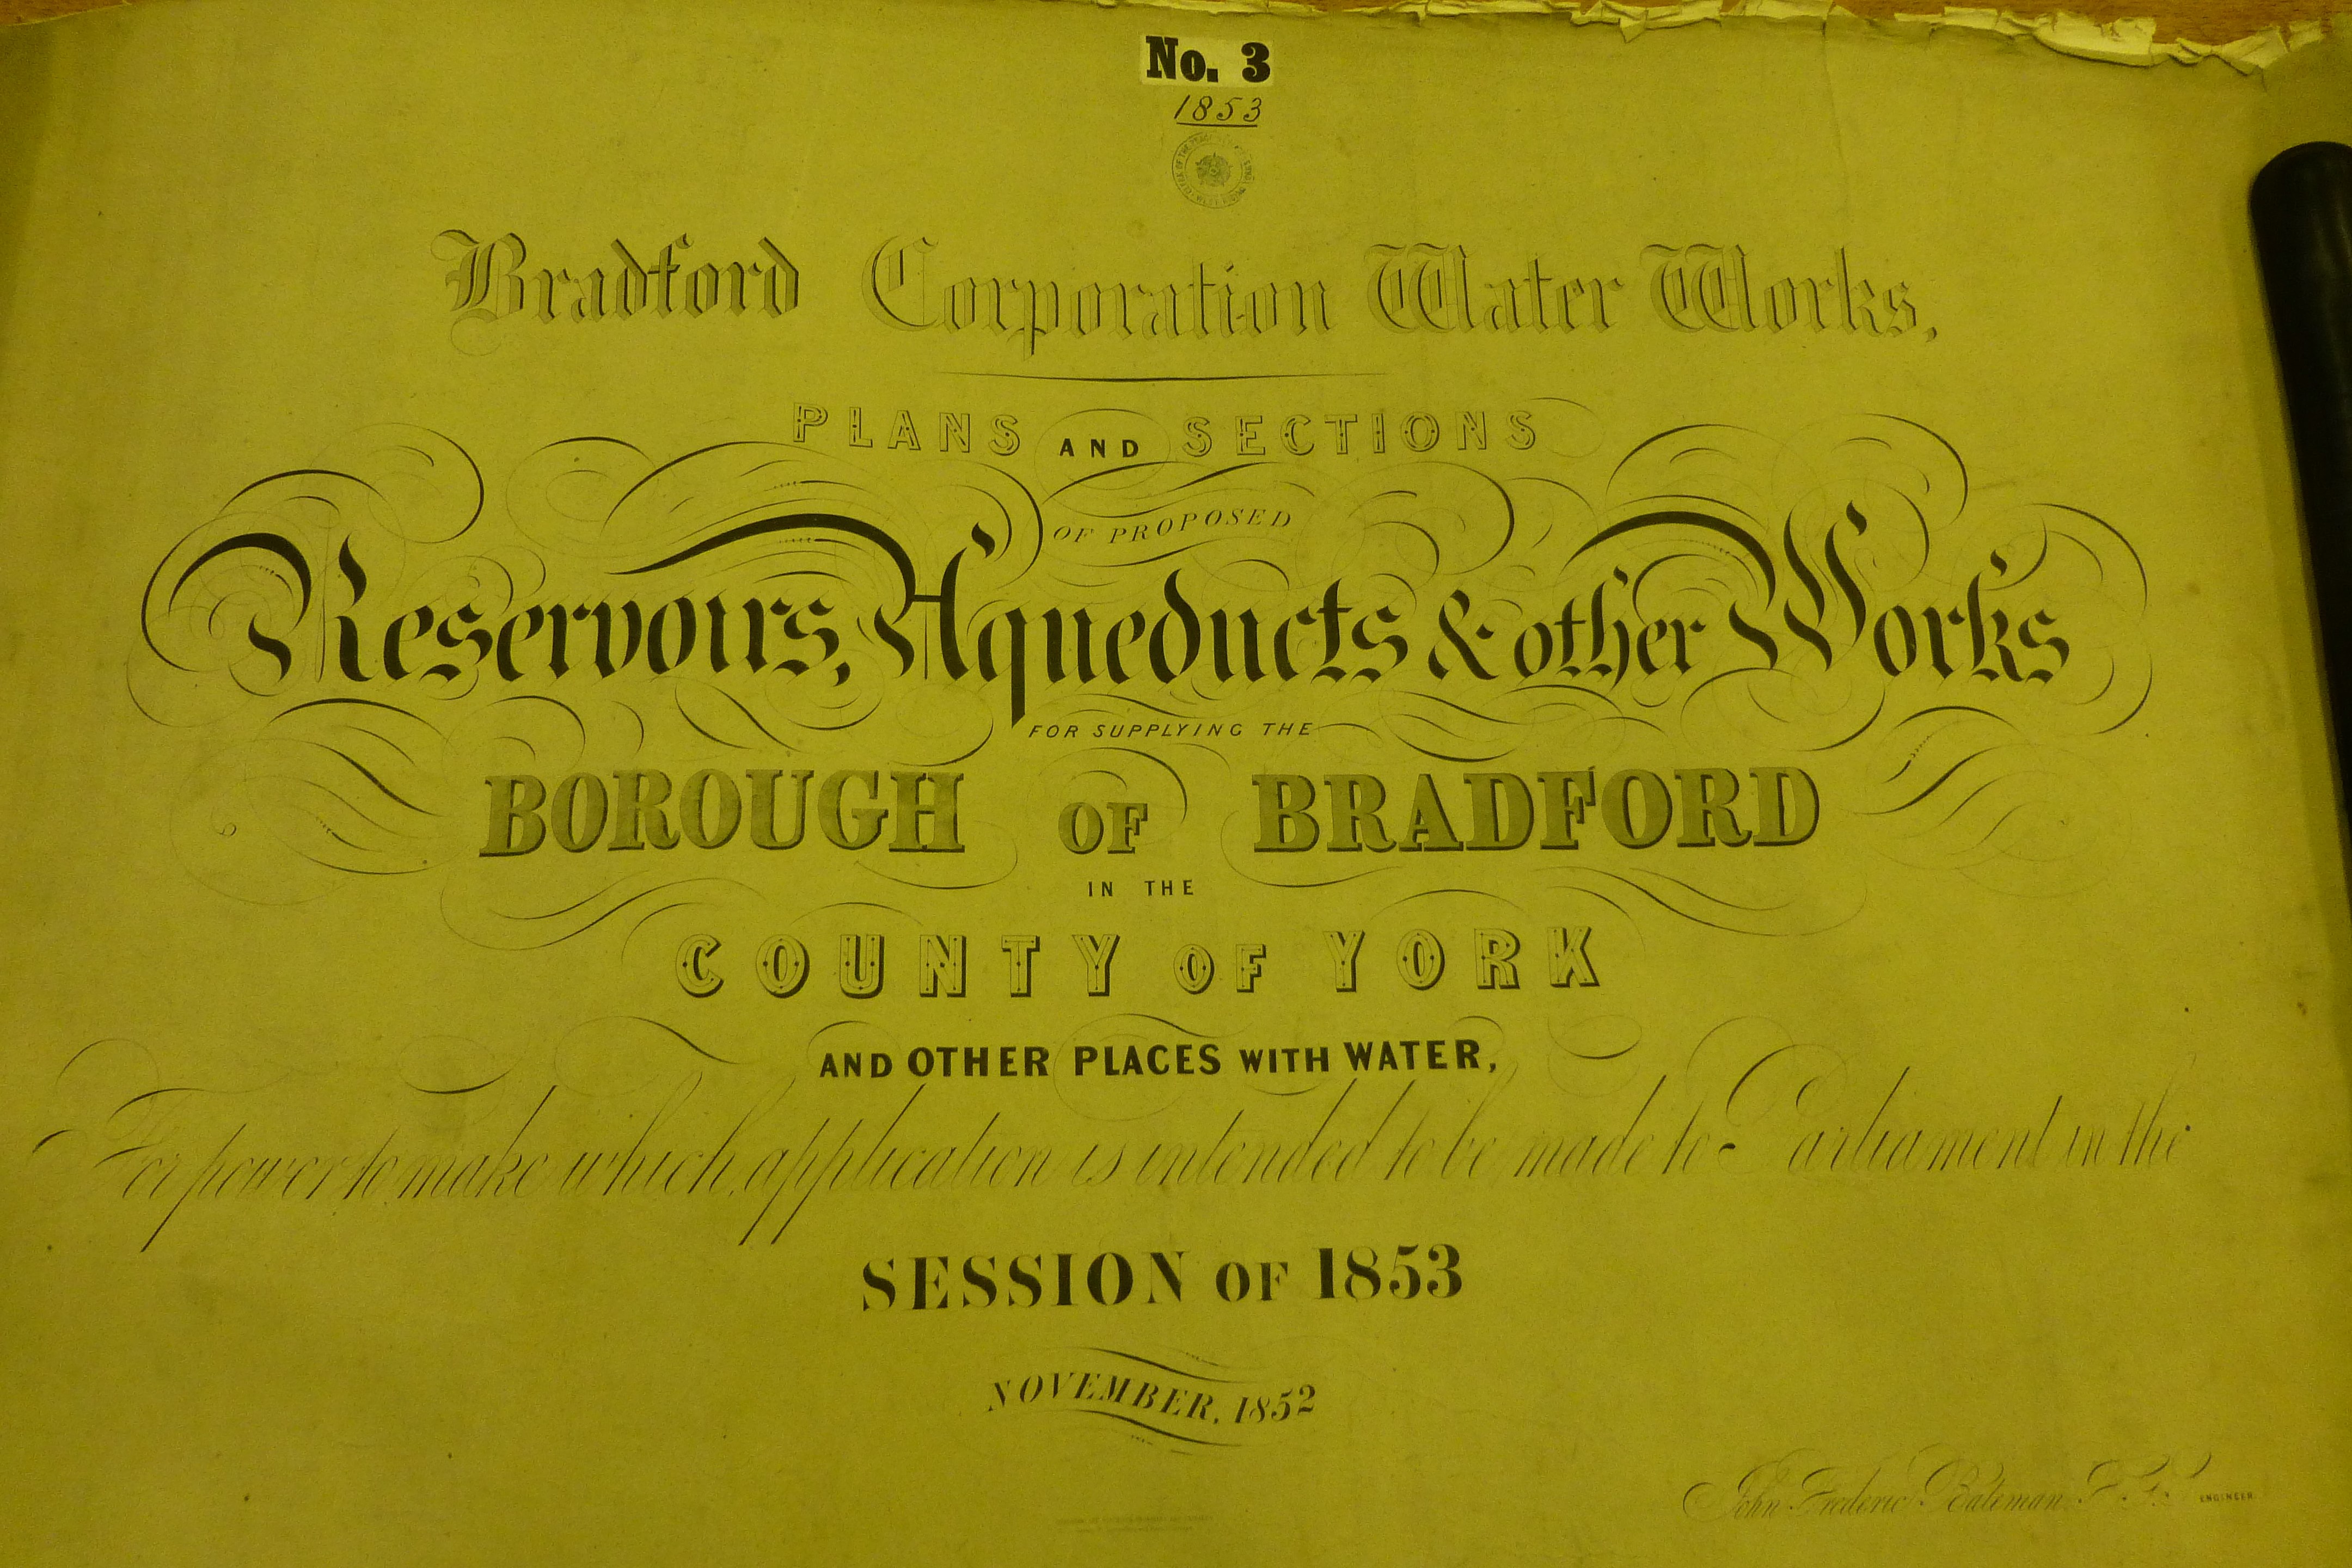 No. 3
1853
Bradford Corporation Water Works,
PLANS AND SECTIONS
OF PROPOSED
Reservoirs, Aqueducts & other Works
FOR SUPPLYING THE
BOROUGH OF BRADFORD
IN THE
COUNTY OF YORK
AND OTHER PLACES WITH WATER,
For power to make which, application is intended to be made to Parliament in the
SESSION OF 1853
NOVEMBER, 1852
John Frederic Bateman F.G.S. ENGINEER.